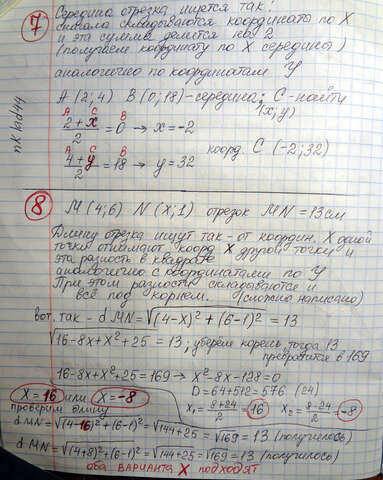 7
Середина отрезка ищется так:
сначала складываются координаты по X
и эта сумма делится на 2
(получаем координату по X середины)
аналогично по координатам У
A (2;4) B (0;18)-середина; C-найти
(x;y)
A C B
2+x/2 = 0 → x=-2
A C B
4+y/2 = 18 → y=32
коорд. C (-2;32)
8
M (4;6) N (x;1) отрезок MN=13см
Длину отрезка ищут так-от координ. X одной
точки отнимают коорд X другой точки и
эта разность в квадрате
аналогично с координатами по У
При этом разности складываются и
всё под корнем. (сложно написано)
вот так - d MN=√(4-X)²+(6-1)² = 13
√16-8x+X²+25 = 13; уберём корень, тогда 13
превратится в 169
16-8x+X²+25=169 → X²-8x-128=0
D=64+512=576 (24)
X=16 или X=-8
X₁=8+24/2=16 X₂=8-24/2=-8
проверим длину
d MN=√(4-16)²+(6-1)²=√144+25=√169=13 (получилось)
d MN=√(4+8)²+(6-1)²=√144+25=√169=13 (получилось)
оба ВАРИАНТА X подходят